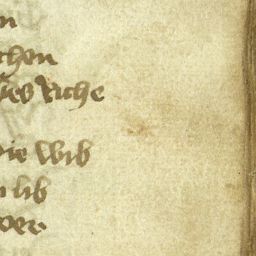 n
chen
des riche
die wib
n lib
wer